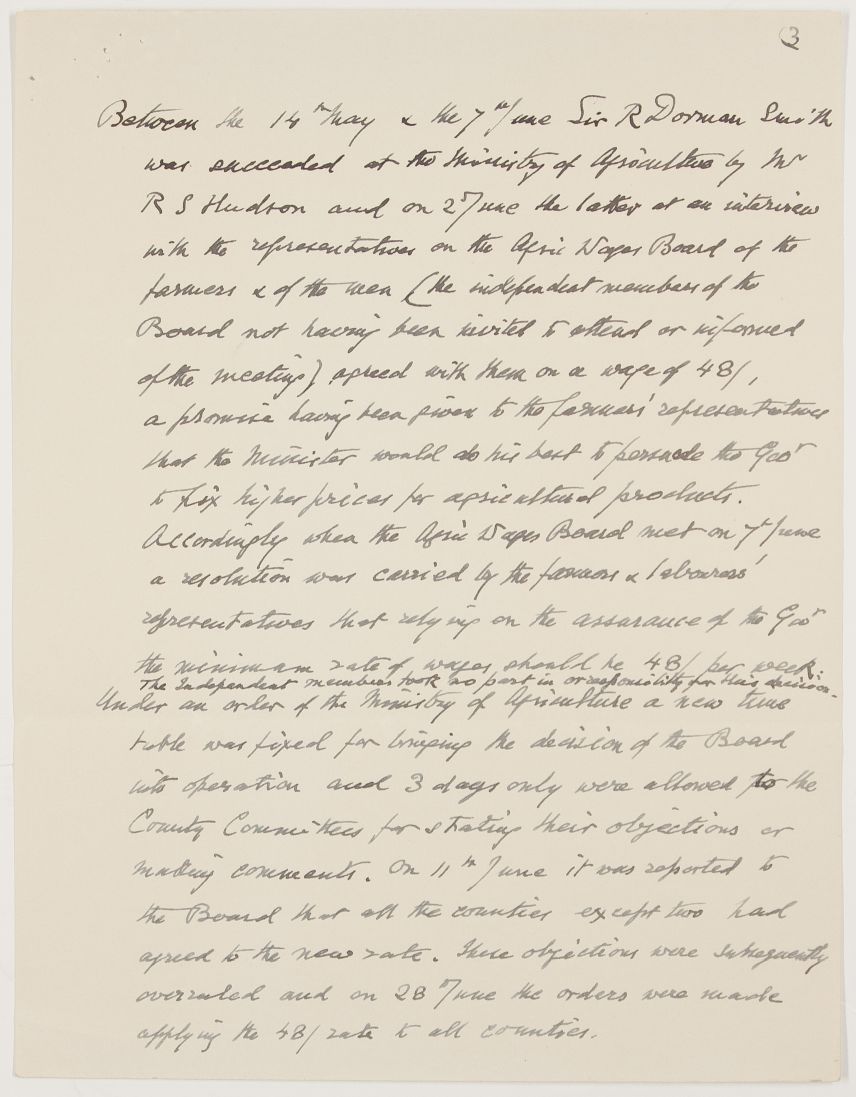 3
Between the 14th May & the 7th June Sir R Dorman Smith
was succeeded at the Ministry of Agriculture by Mr
R S Hudson and on 2d June the latter at an interview
with the representatives on the Agric Wages Board of the
farmers & of the men (the independent members of the
Board not having been invited to attend or informed
of the meeting) agreed with them on a wage of 48/,
a promise having been given to the farmers' representatives
that the Minister would do his best to persuade the Govt
to fix higher prices for agricultural products.
Accordingly when the Agric Wages Board met on 7th June
a resolution was carried by the farmers & labourers'
representatives that relying on the assurance of the Govt
the minimum rate of wages should be 48/ per week:
The Independent members took no part in or responsibility for this decision.
Under an order of the Ministry of Agriculture a new time
table was fixed for bringing the decision of the Board
into operation and 3 days only were allowed to the
County Committees for stating their objections or
making comments. On 11th June it was reported to
the Board that all the counties except two had
agreed to the new rate. These objections were subsequently
overruled and on 28th June the orders were made
applying the 48/ rate to all counties.